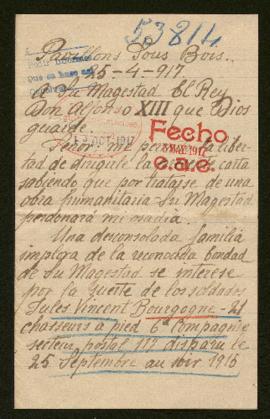 53814
Pavillons Sous Bois.
25-4-917.
A Su Magestad El Rey
Don Alfonso XIII que Dios
guarde
Señor me permito la liber-
tad de dirigirle la presente carta
sabiendo que por tratarse de una
obra humanitaria Su Magestad
perdonará mi osadia.
Fecho
MAY. 1917
Una desconsolada familia
implora de la reconocida bondad
de Su Magestad se interese
por la suerte de los soldados
Jules Vincent Bourgogne - 21
chasseurs à pied 6ª Compagnie
secteur postal 117 disparu le
25 Septembre au soir 1915